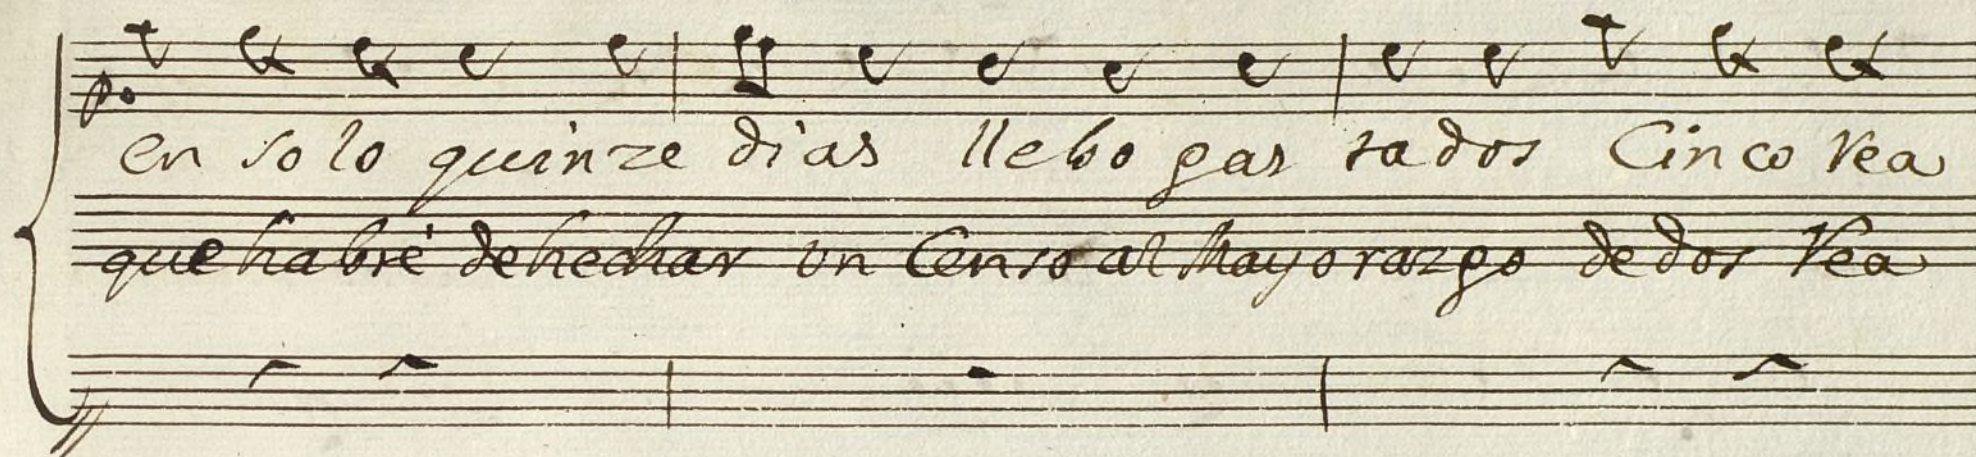 en so lo quin ze di as lle bo gas ta dos Cin co Rea
que ha bré de hechar un Censo al Mayorazgo de dos Rea